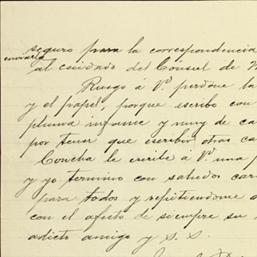 seguro para la correspondencia
enviarla al cuidado del Consul de
Ruego á Vd. perdone la
y el papel, porque escribo con
pluma infame y muy de
por tener que escribir otras
Concha le escribe á Vd. una
y yo termino con saludos
para todos y repitiendome
con el afecto de siempre su
adicto amigo y S. S.